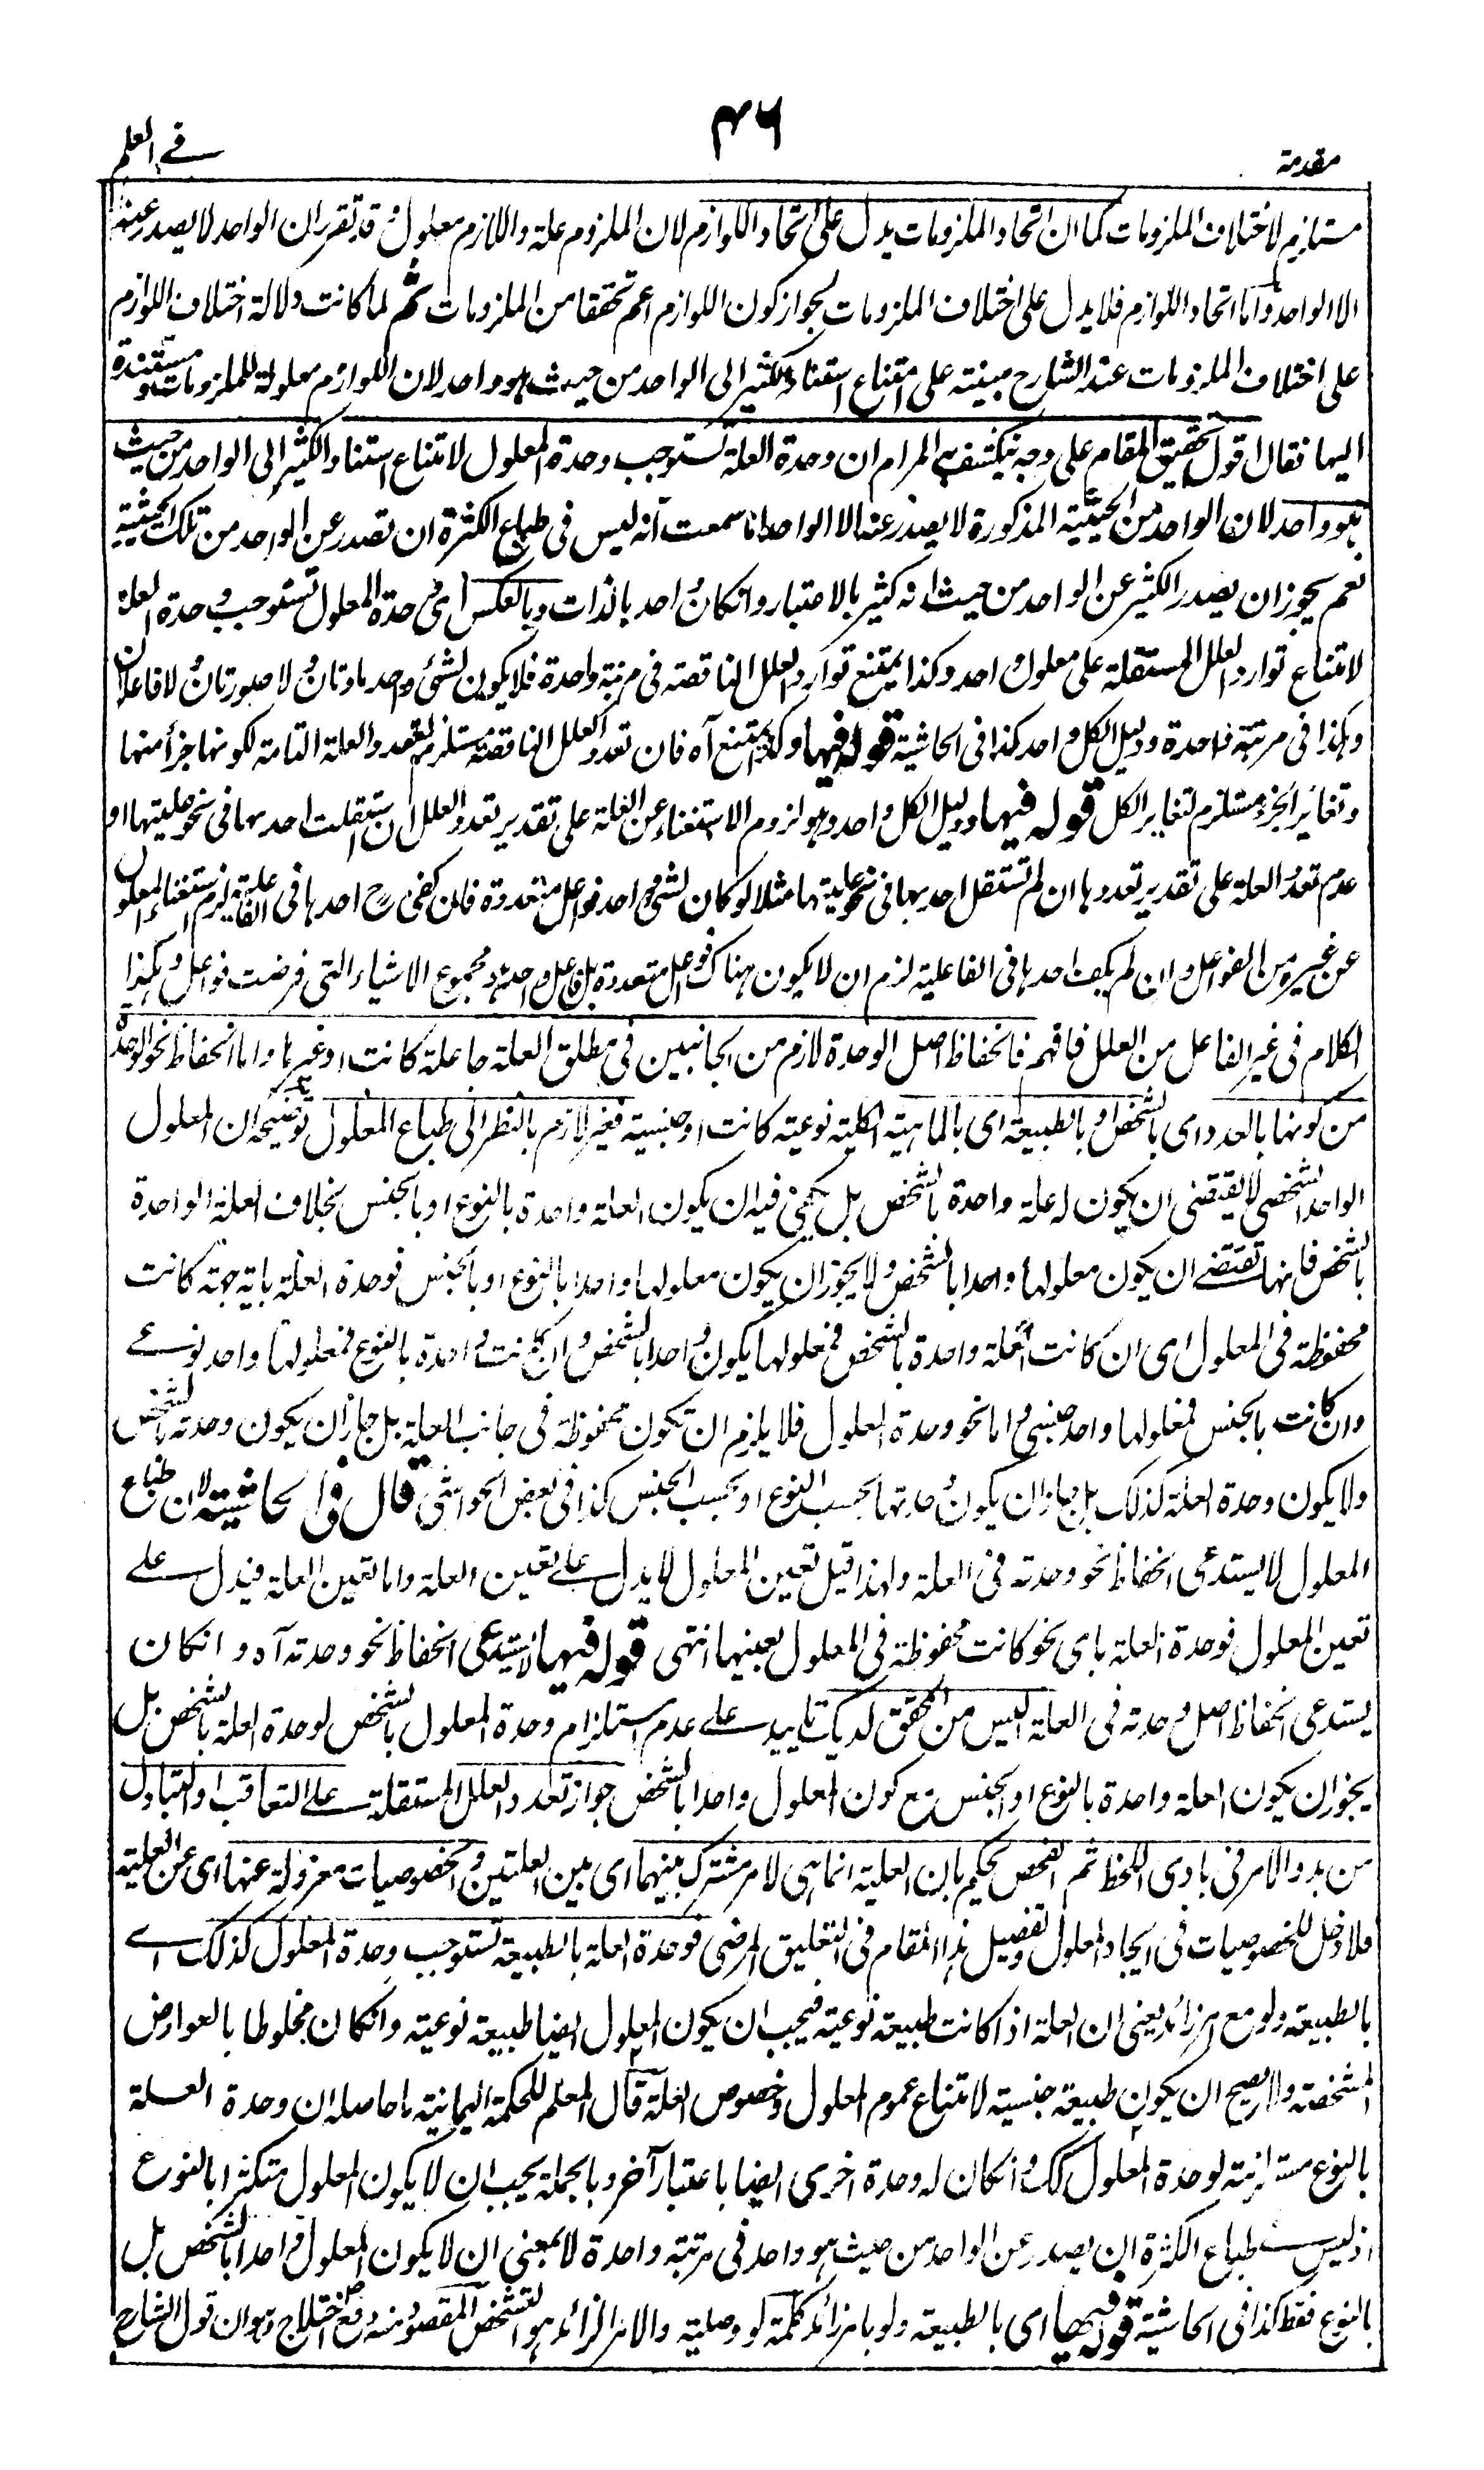 مقدمة
٤٦
في العلم
مستلزم لاختلاف الملزومات كما ان اتحاد الملزومات يدل على اتحاد اللوازم لان الملزوم علة واللازم معلول و قد تقرر ان الواحد لا يصدر عنه
الا الواحد واما اتحاد اللوازم فلا يدل على اختلاف الملزومات لجواز كون اللوازم اعم تحققا من الملزومات ثم لما كانت دلالة اختلاف اللوازم
على اختلاف الملزومات عند الشارح مبنية على امتناع استناد الكثير الى الواحد من حيث هو واحد لان اللوازم معلولة للملزومات و مستندة
اليها فقال اقول تحقيق المقام على وجه ينكشف به المرام ان وحدة العلة تستوجب وحدة المعلول لامتناع استناد الكثير الى الواحد من حيث
هو واحد لان الواحد من الحيثية المذكورة لا يصدر عنه الا الواحد لما سمعت انه ليس فى طباع الكثرة ان تصدر عن الواحد من تلك الحيثية
نعم يجوز ان يصدر الكثير عن الواحد من حيث انه كثير بالاعتبار وانكان واحد بالذات وبالعكس اى وحدة المعلول تستوجب وحدة العلة
لامتناع توارد العلل المستقلة على معلول واحد وكذا يمتنع توارد العلل الناقصة فى مرتبة واحدة فلا يكون لشئ واحد مادتان ولا صورتان ولا فاعلان
وهكذا فى مرتبة واحدة ودليل الكل واحد كذا فى الحاشية قوله فيها وكذا يمتنع آه فان تعدد العلل الناقصة مستلزم لتعدد العلة التامة لكونها جزأ منها
وتغاير الجزء مستلزم لتغاير الكل قوله فيها ودليل الكل واحد وهو لزوم الاستغناء عن العلة على تقدير تعدد العلل ان استقلت احدىها فى نحو عليتها او
عدم تعدد العلة على تقدير تعددها ان لم تستقل احدىها فى نحو عليتها مثلا لو كان لشئ واحد فواعل متعددة فان كفى ح احدها فى الفاعلية لزم استغناء المعلول
عن غيره من الفواعل وان لم يكف احدها فى الفاعلية لزم ان لا يكون هناك فواعل متعددة بل فاعل واحد هو مجموع الاشياء التى فرضت فواعل وهكذا
الكلام فى غير الفاعل من العلل فافهم فانحفاظ اصل الوحدة لازم من الجانبين فى مطلق العلة جاعلة كانت او غيرها واما انحفاظ نحو الوحدة
من كونها بالعدد اى بالشخص او بالطبيعة اى بالماهية الكلية نوعية كانت او جنسية فغير لازم بالنظر الى طباع المعلول توضيحه ان المعلول
الواحد الشخصى لا يقتضى ان يكون له علة واحدة بالشخص بل يكفى فيه ان يكون العلة واحدة بالنوع او بالجنس بخلاف العلة الواحدة
بالشخص فانها تقتضى ان يكون معلولها واحدا بالشخص ولا يجوز ان يكون معلولها واحدا بالنوع او بالجنس فوحدة العلة باية جهة كانت
محفوظة فى المعلول اى ان كانت العلة واحدة بالشخص فمعلولها يكون واحدا بالشخص وان كانت واحدة بالنوع فمعلولها واحد نوعى
وان كانت بالجنس فمعلولها واحد جنسى واما نحو وحدة المعلول فلا يلزم ان تكون محفوظة فى جانب العلة بل جاز ان يكون وحدته بالشخص
ولا يكون وحدة العلة كذلك بل جاز ان يكون وحدتها بحسب النوع او بحسب الجنس كذا فى بعض الحواشى قال فى الحاشية لان طباع
المعلول لا يستدعى انحفاظ نحو وحدته فى العلة ولهذا قيل تعين المعلول لا يدل على تعين العلة واما تعين العلة فيدل على
تعين المعلول فوحدة العلة باى نحو كانت محفوظة فى المعلول بعينها انتهى قوله فيها لا يستدعى انحفاظ نحو وحدته آه و انكان
يستدعى انحفاظ اصل وحدته فى العلة اليس من المحقق لديك تاييد على عدم استلزام وحدة المعلول بالشخص لوحدة العلة بالشخص بل
يجوز ان يكون العلة واحدة بالنوع او الجنس مع كون المعلول واحدا بالشخص جواز تعدد العلل المستقلة على التعاقب او التبادل
من بدو الامر فى بادى اللحظ ثم الفحص يحكم بان العلية انما هى لامر مشترك بينهما اى بين العلتين والخصوصيات معزولة عنها اى عن العلية
فلا دخل للخصوصيات فى ايجاد المعلول وتفصيل هذا المقام فى التعليق المرضى فوحدة العلة بالطبيعة تستوجب وحدة المعلول كذلك اى
بالطبيعة ولو مع امر زائد يعنى ان العلة اذا كانت طبيعة نوعية فيجب ان يكون المعلول ايضا طبيعة نوعية وانكان مخلوطا بالعوارض
المشخصة ولا يصح ان يكون طبيعة جنسية لامتناع عموم المعلول وخصوص العلة قال المعلم للحكمة اليمانية ما حاصله ان وحدة العلة
بالنوع مستلزمة لوحدة المعلول كك وانكان له وحدة اخرى ايضا باعتبار آخر وبالجملة يجب ان لا يكون المعلول متكثرا بالنوع
اذ ليس طباع الكثرة ان يصدر عن الواحد من حيث هو واحد فى مرتبة واحدة لا بمعنى ان لا يكون المعلول واحدا بالشخص بل
بالنوع فقط كذا فى الحاشية قوله فيها اى بالطبيعة ولو بامر زائد كلمة لو وصلية والامر الزائد هو التشخص المقصود منه دفع اختلاج وهو ان قول الشارح